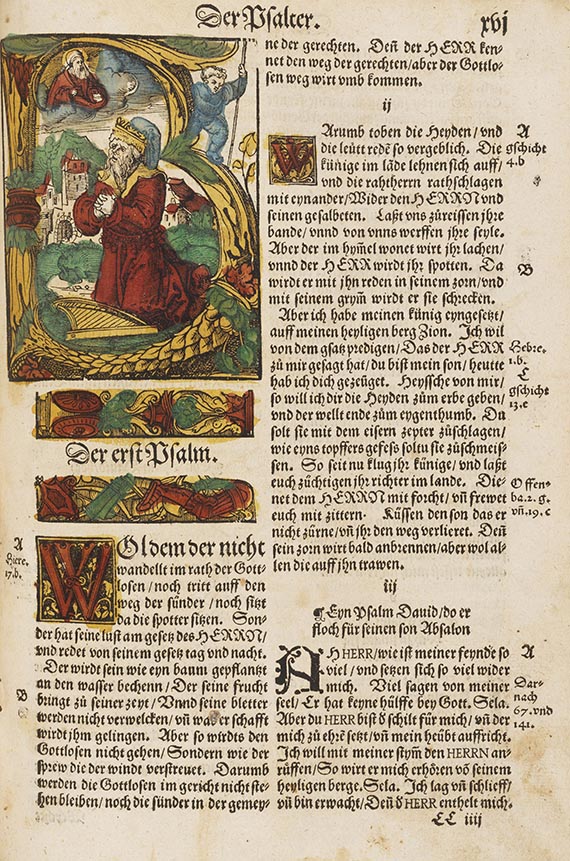 Der Psalter.
xvj
Der erst Psalm.
A
Hiere.
17.b.
WOl dem der nicht
wandellt im rath der Gott-
losen / noch tritt auff den
weg der sünder / noch sitzt
da die spotter sitzen. Son-
der hat seine lust am gesetz des HERRN /
vnd redet von seinem gesetz tag vnd nacht.
Der wirdt sein wie eyn baum gepflantzt
an den wasser bechenn / Der seine frucht
B
bringt zu seiner zeyt / Vnnd seine bletter
werden nicht verwelcken / vñ was er schafft
wirdt jhm gelingen. Aber so würdts den
Gottlosen nicht gehen / Sondern wie der
sprew die der windt verstreuet. Darumb
werden die Gottlosen im gericht nicht ste-
hen bleiben / noch die sünder in der gemey-
ne der gerechten. Deñ der HERR ken-
net den weg der gerechten / aber der Gottlo-
sen weg wirt vmb kommen.
ij
WArumb toben die Heyden / vnd
A
die leütt redē so vergeblich. Die
gschicht
künige im lāde lehnen sich auff /
4.b
vnd die rahtherrn rathschlagen
mit eynander / Wider den HERRN vnd
seinen gesalbeten. Laßt vns zůreissen jhre
bande / vnnd von vnns werffen jhre seyle.
Aber der im hym̄el wonet wirt jhr lachen /
vnnd der HERR wirdt jhr spotten. Da
B
wirdt er mit jhn reden in seinem zorn / vnd
mit seinem grym̄ wirdt er sie schrecken.
Aber ich habe meinen künig eyngesetzt /
auff meinen heyligen berg Zion. Ich wil
von dem gsatz predigen / Das der HERR
Hebre.
zů mir gesagt hat / du bist mein son / heutte
1.b.
hab ich dich gezeüget. Heyssche von mir /
C
so will ich dir die Heyden zům erbe geben /
gschicht
vnd der wellt ende zům eygenthumb. Du
13.e
solt sie mit dem eisern zepter zůschlagen /
wie eyns topffers gefeß soltu sie zůschmeis-
sen. So seit nu klug jhr künige / vnd laßt
euch züchtigen jhr richter im lande. Die-
Offen-
net dem HERRN mit forcht / vñ frewet
ba.2.g.
euch mit zittern. Küssen den son das er
vñ.19.c
nicht zürne / vñ jhr den weg verlieret. Deñ
sein zorn wirt bald anbrennen / aber wol al-
len die auff jhn trawen.
iij
¶Eyn Psalm Dauid / do er
floch für seinen son Absalon
AH HERR / wie ist meiner feynde so
A
viel / vnd setzen sich so viel wider
mich. Viel sagen von meiner
Dar-
seel / Er hat keyne hülffe bey Gott. Sela.
nach
Aber du HERR bist ð schilt für mich / vñ der
67.vnd
mich zů ehrē setzt / vñ mein heübt auffricht.
141.
Ich will mit meiner stym̄ den HERRN an-
rüffen / So wirt er mich erhören vō seinem
heyligen berge. Sela. Ich lag vñ schlieff /
vñ bin erwacht / Deñ ð HERR enthelt mich.
CC iiij